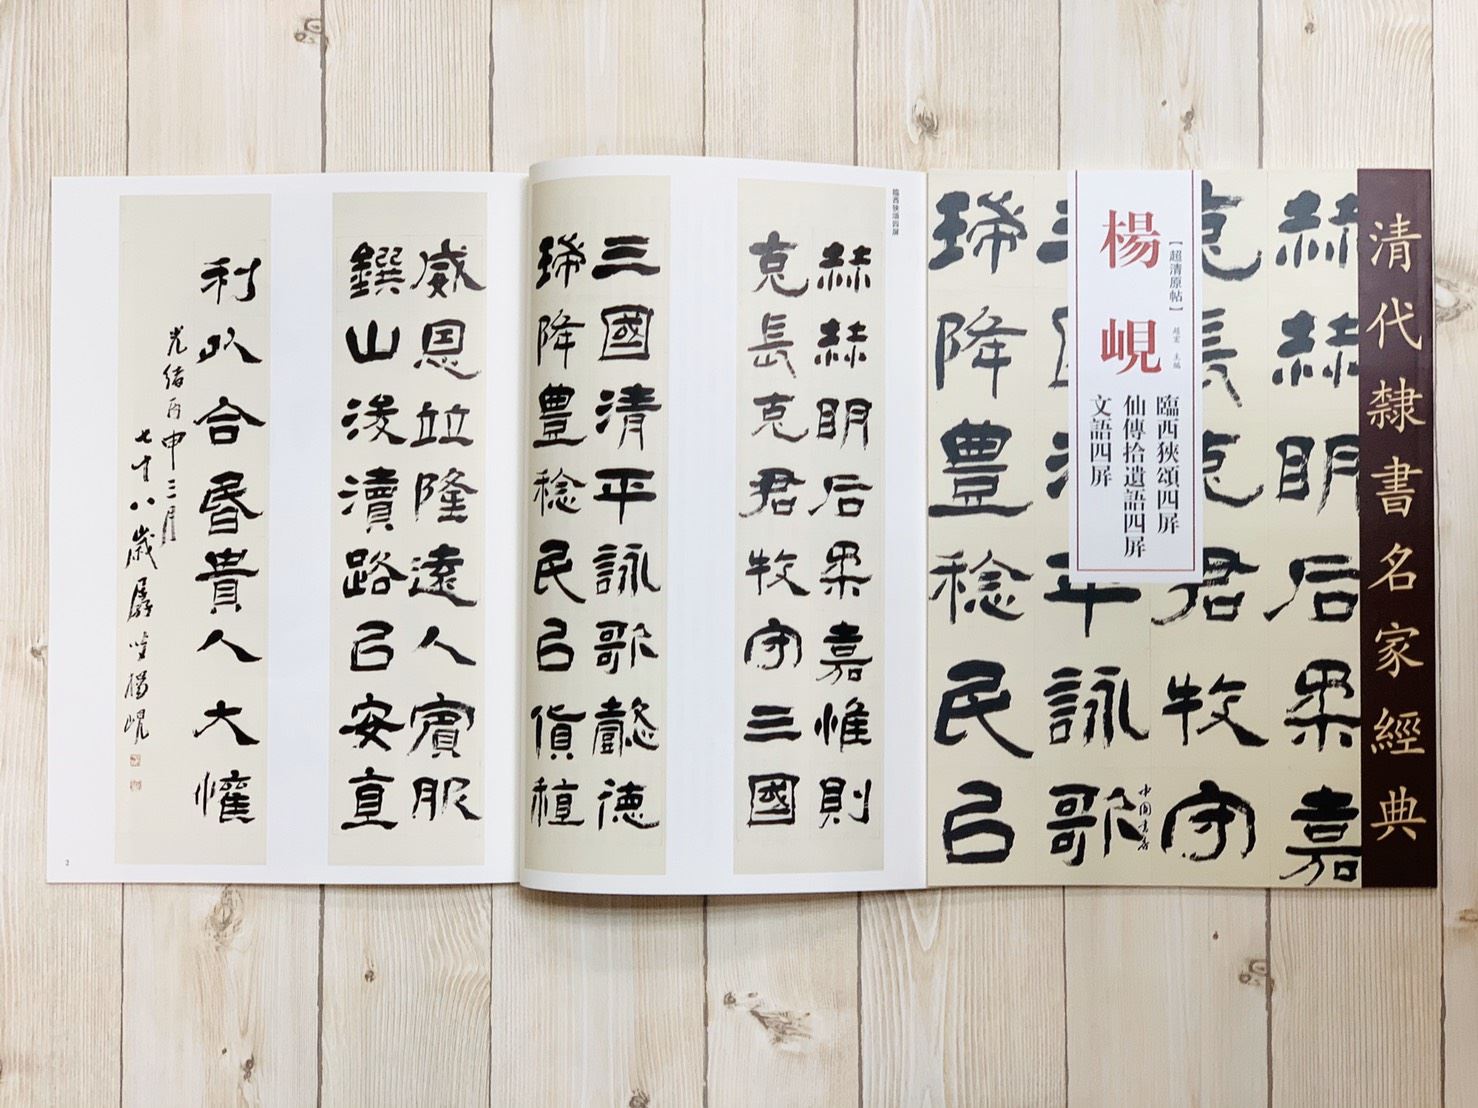 清代隸書名家經典
【超清原帖】
趙宏 主編
楊峴
臨西狹頌四屏
仙傳拾遺語四屏
文語四屏
赫赫明后柔嘉
克長克君牧守
三國清平詠歌
瑞降豐稔民㠯
中國書店
臨西狹頌四屏
赫赫明后柔嘉惟則
克長克君牧守三國
三國清平詠歌懿德
瑞降豐稔民㠯貨稙
威恩並隆遠人賓服
鐫山浚瀆路㠯安直
利以合昏貴人大懽
光緒丙申三月
七十八歲楊峴
2